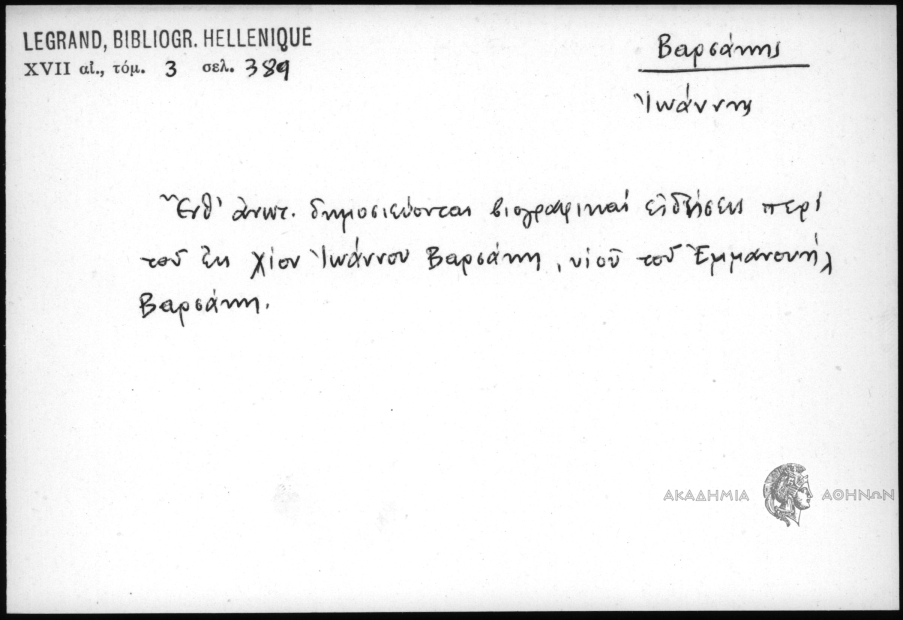 LEGRAND, BIBLIOGR. HELLENIQUE
XVII αἰ., τόμ. 3 σελ. 389
Βαρσάκης
Ἰωάννης
Ἔνθ' ἀνωτ. δημοσιεύονται βιογραφικαί εἰδήσεις περί
τοῦ ἐκ Χίου Ἰωάννου Βαρσάκη, υἱοῦ τοῦ Ἐμμανουήλ
Βαρσάκη.
ΑΚΑΔΗΜΙΑ ΑΘΗΝΩΝ